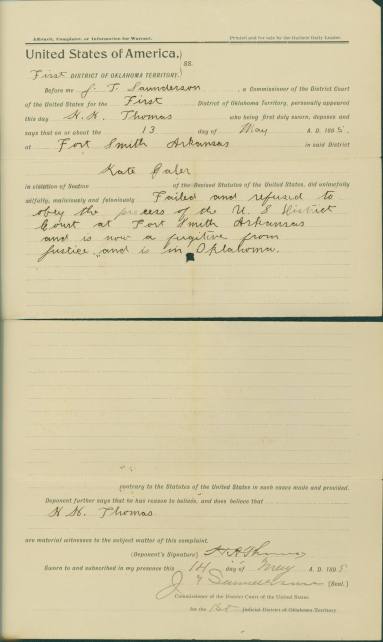 Affidavit, Complaint, or Information for Warrant. Printed and for sale by the Guthrie Daily Leader.
United States of America, } ss.
First DISTRICT OF OKLAHOMA TERRITORY.
Before me J. T. Saunderson, a Commissioner of the District Court
of the United States for the First District of Oklahoma Territory, personally appeared
this day H. H. Thomas who being first duly sworn, deposes and
says that on or about the 13 day of May A. D. 1895,
at Fort Smith Arkansas in said District
Kate
in violation of Section of the Revised Statutes of the United States, did unlawfully
wilfully, maliciously and feloniously Failed and refused to
obey the process of the U. S District
Court at Fort Smith Arkansas
and is now a fugitive from
Justice, and is in Oklahoma.
contrary to the Statutes of the United States in such cases made and provided.
Deponent further says that he has reason to believe, and does believe that
H. H. Thomas
are material witnesses to the subject matter of this complaint.
(Deponent's Signature) H. H. Thomas
Sworn to and subscribed in my presence this 14 day of May A. D. 1895
J T Saunderson (Seal.)
Commissioner of the District Court of the United States
for the 1st Judicial District of Oklahoma Territory.